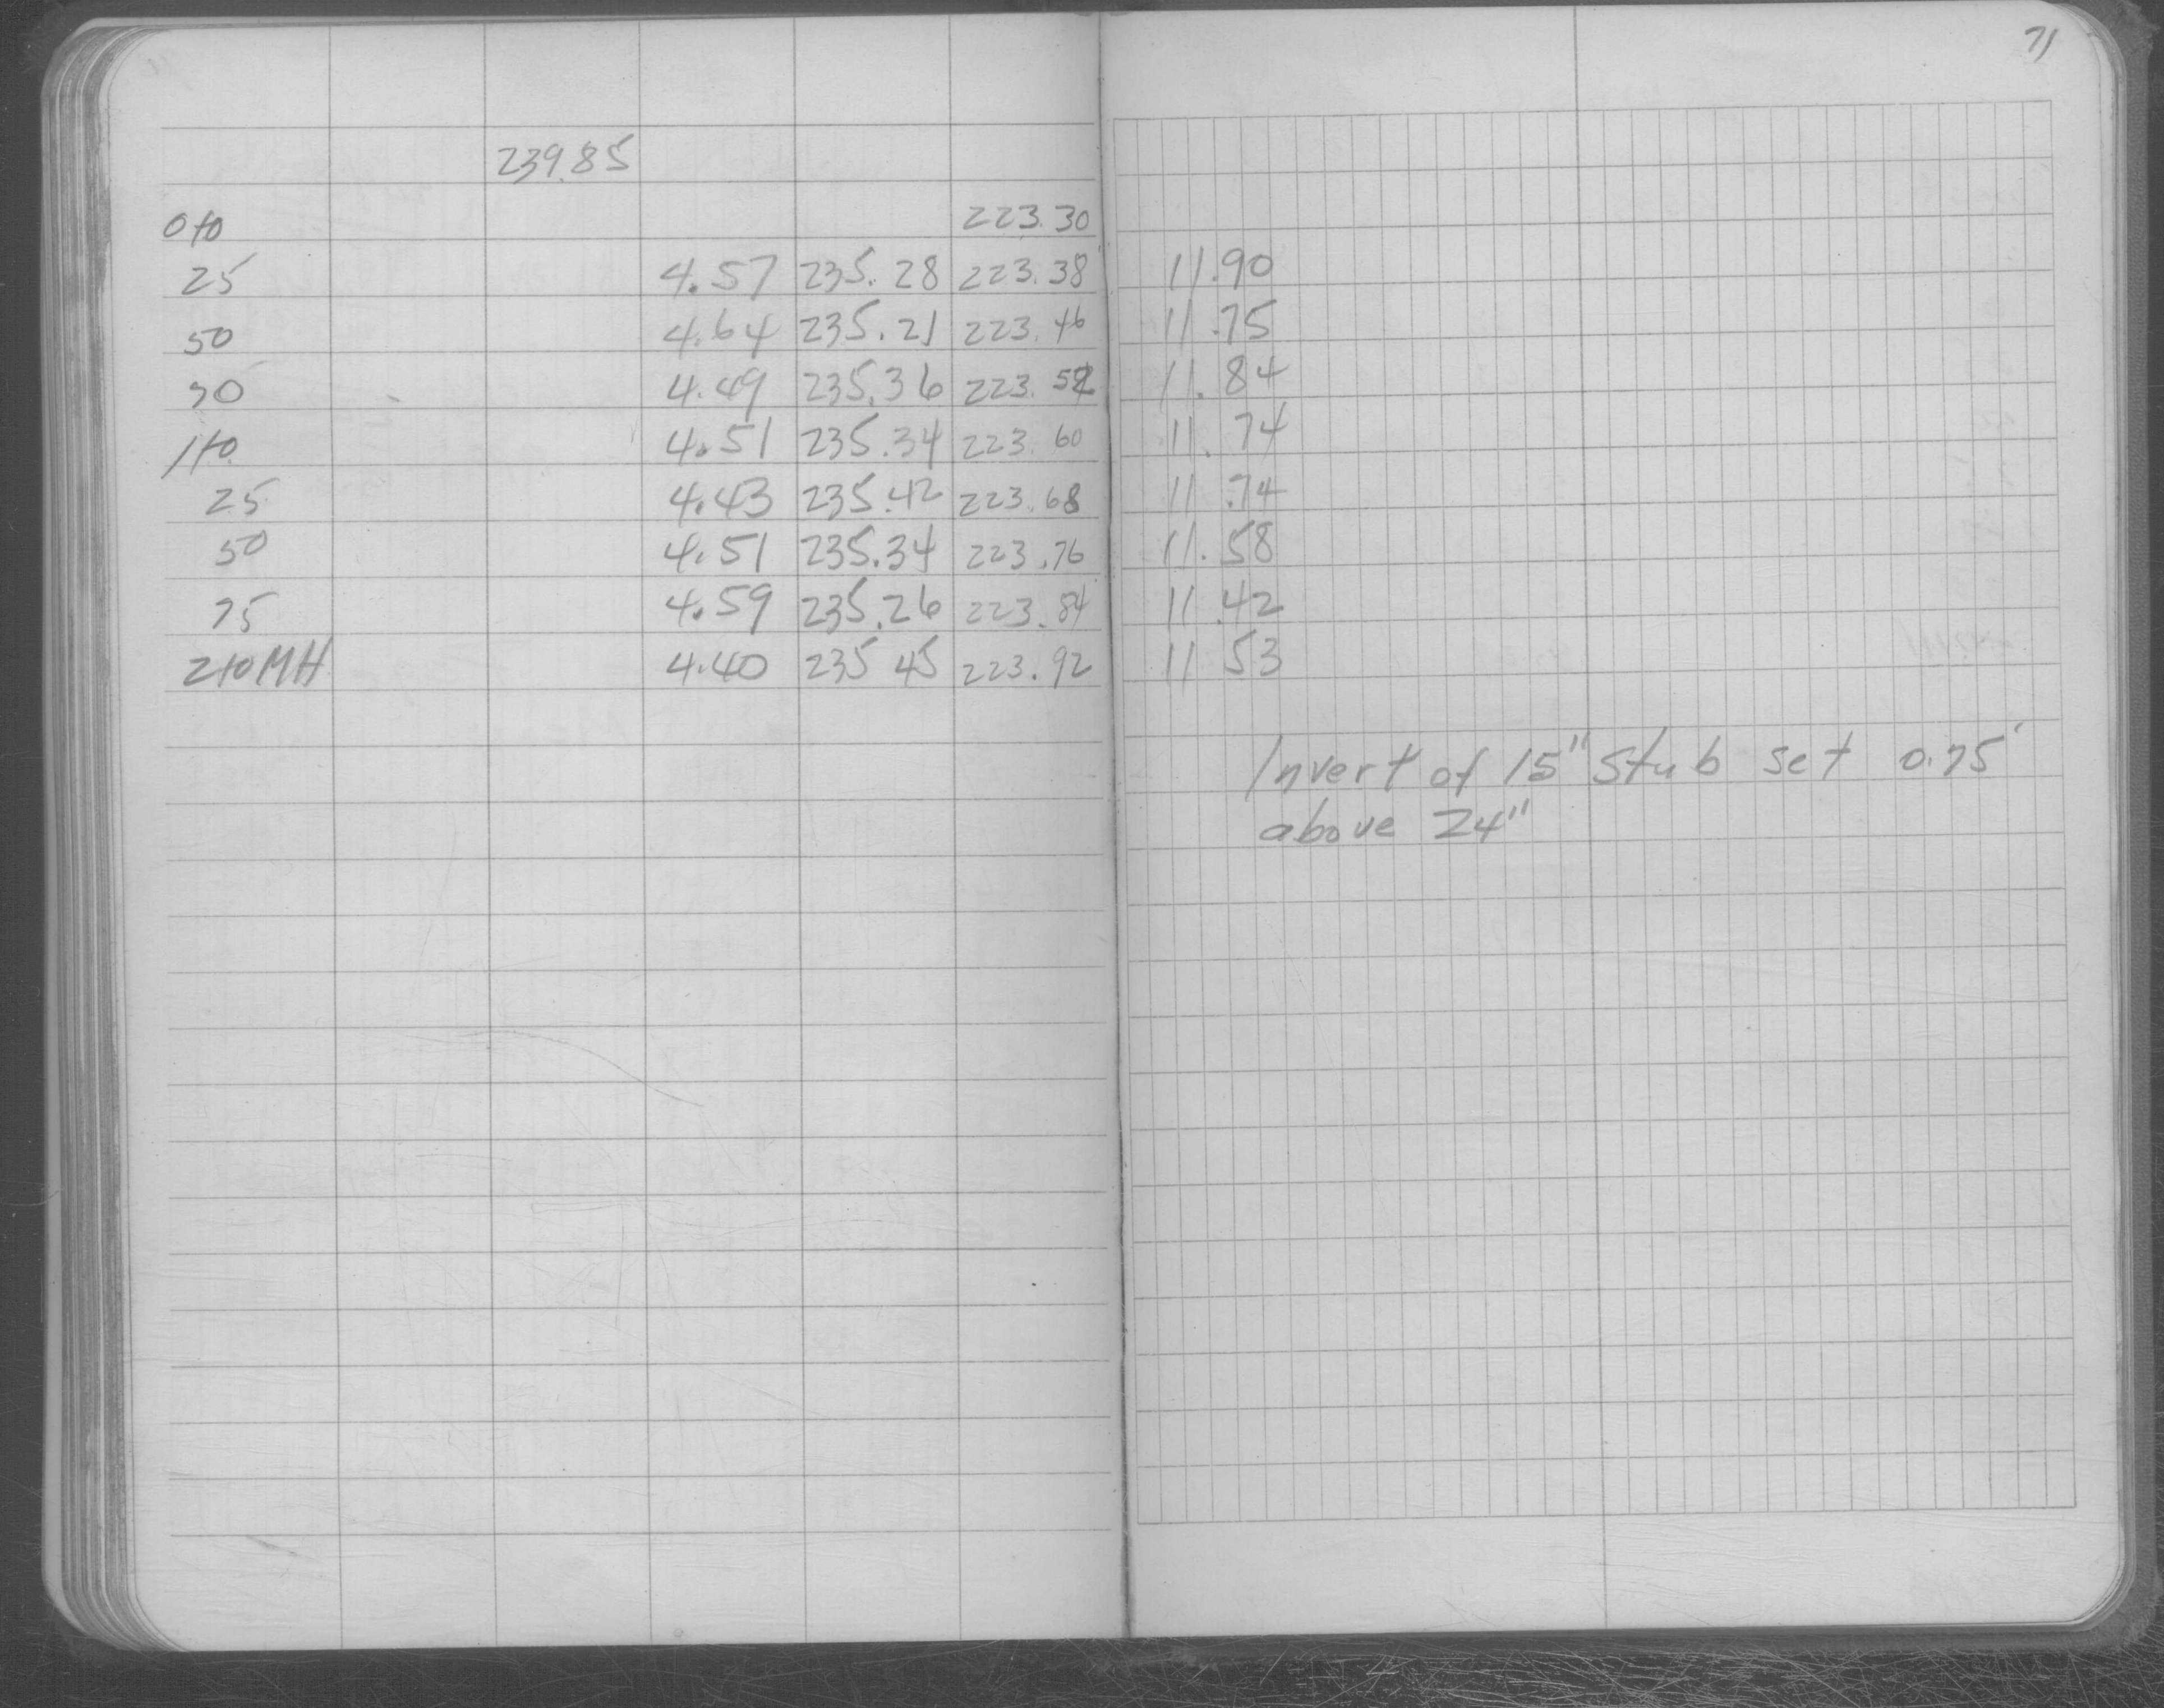 71
239.85
0+0 223.30
25 4.57 235.28 223.38 11.90
50 4.64 235.21 223.46 11.75
70 4.49 235.36 223.52 11.84
1+0 4.51 235.34 223.60 11.74
25 4.43 235.42 223.68 11.74
50 4.51 235.34 223.76 11.58
75 4.59 235.26 223.84 11.42
2+0 MH 4.40 235 45 223.92 11 53
Invert of 15" stub set 0.75'
above 24"